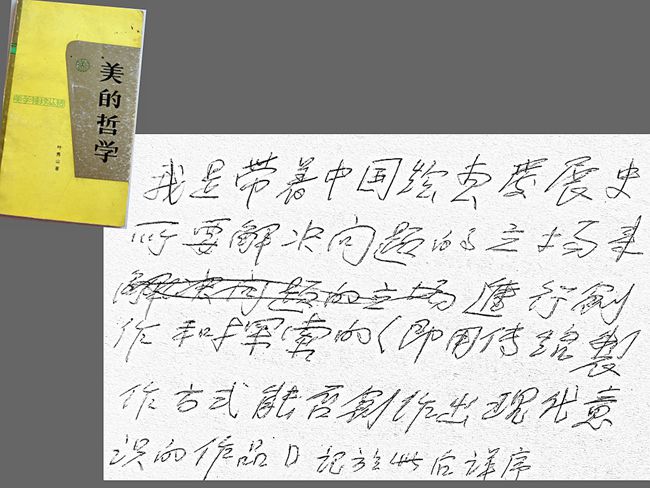 美的哲学
叶秀山著
我是带着中国绘画發展史
所要解决问题的立场来
解决问题的立场進行創
作和探索的(即用传统製
作方式能否創作出现代意
识的作品)记於此后详序